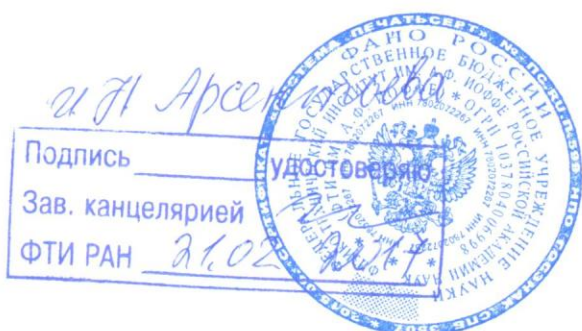 И Н Арсентьева
Подпись удостоверяю
Зав. канцелярией
ФТИ РАН 21.02 2017
ФАНО РОССИИ
ГОСУДАРСТВЕННОЕ БЮДЖЕТНОЕ УЧРЕЖДЕНИЕ НАУКИ
ИНСТИТУТ ИМ. А.Ф. ИОФФЕ РОССИЙСКОЙ АКАДЕМИИ НАУК
ОГРН 1037804006998
ИНН 7802072267